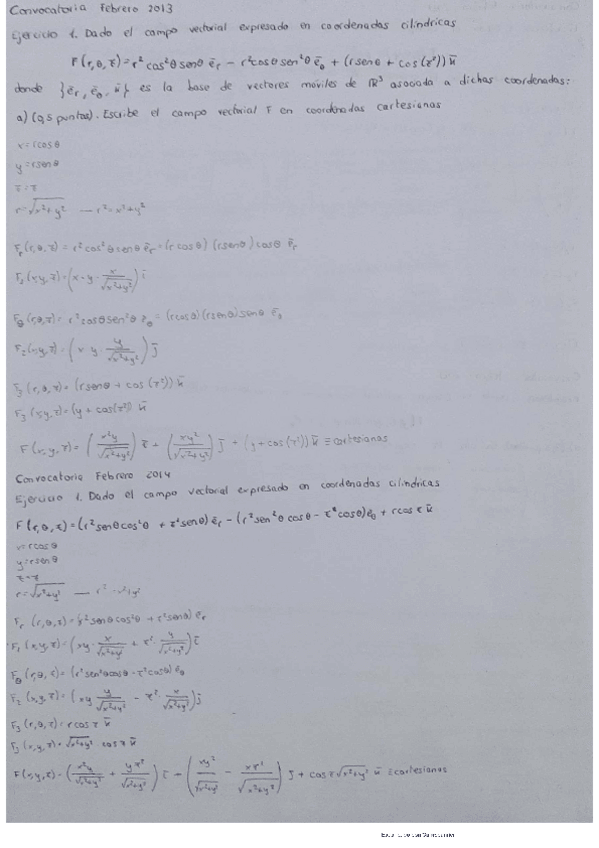 Convocatoria Febrero 2013
Ejercicio 1. Dado el campo vectorial expresado en coordenadas cilíndricas
F(r,θ,z) = r² cos²θ senθ ēr − r² cosθ sen²θ ēθ + (r senθ + cos(z²)) k̄
donde {ēr, ēθ, k̄} es la base de vectores móviles de ℝ³ asociada a dichas coordenadas:
a) (0,5 puntos). Escribe el campo vectorial F en coordenadas cartesianas
x = r cosθ
y = r senθ
z = z
r = √(x²+y²) — r² = x²+y²
Fr(r,θ,z) = r² cos²θ senθ ēr = (r cosθ)(r senθ) cosθ ēr
F₁(x,y,z) = (x·y·x/√(x²+y²)) ī
Fθ(r,θ,z) = r² cosθ sen²θ ēθ = (r cosθ)(r senθ) senθ
F₂(x,y,z) = (x·y·y/√(x²+y²)) j̄
F₃(r,θ,z) = (r senθ + cos(z²)) k̄
F₃(x,y,z) = (y + cos(z²)) k̄
F(x,y,z) = (x²y/√(x²+y²)) ī + (xy²/√(x²+y²)) j̄ + (y + cos(z²)) k̄ ≡ cartesianas
Convocatoria Febrero 2014
Ejercicio 1. Dado el campo vectorial expresado en coordenadas cilíndricas
F(r,θ,z) = (r² senθ cos²θ + z² senθ) ēr − (r² sen²θ cosθ − z² cosθ) ēθ + r cos z k̄
x = r cosθ
y = r senθ
z = z
r = √(x²+y²) — r² = x²+y²
Fr(r,θ,z) = (r² senθ cos²θ + z² senθ) ēr
F₁(x,y,z) = (xy·x/√(x²+y²) + z²·y/√(x²+y²)) ī
Fθ(r,θ,z) = (r² sen²θ cosθ − z² cosθ) ēθ
F₂(x,y,z) = (xy y/√(x²+y²) − z²·x/√(x²+y²)) j̄
F₃(r,θ,z) = r cos z k̄
F₃(x,y,z) = √(x²+y²) cos z k̄
F(x,y,z) = (x²y/√(x²+y²) + yz²/√(x²+y²)) ī + (xy²/√(x²+y²) − xz²/√(x²+y²)) j̄ + cos z √(x²+y²) k̄ ≡ cartesianas